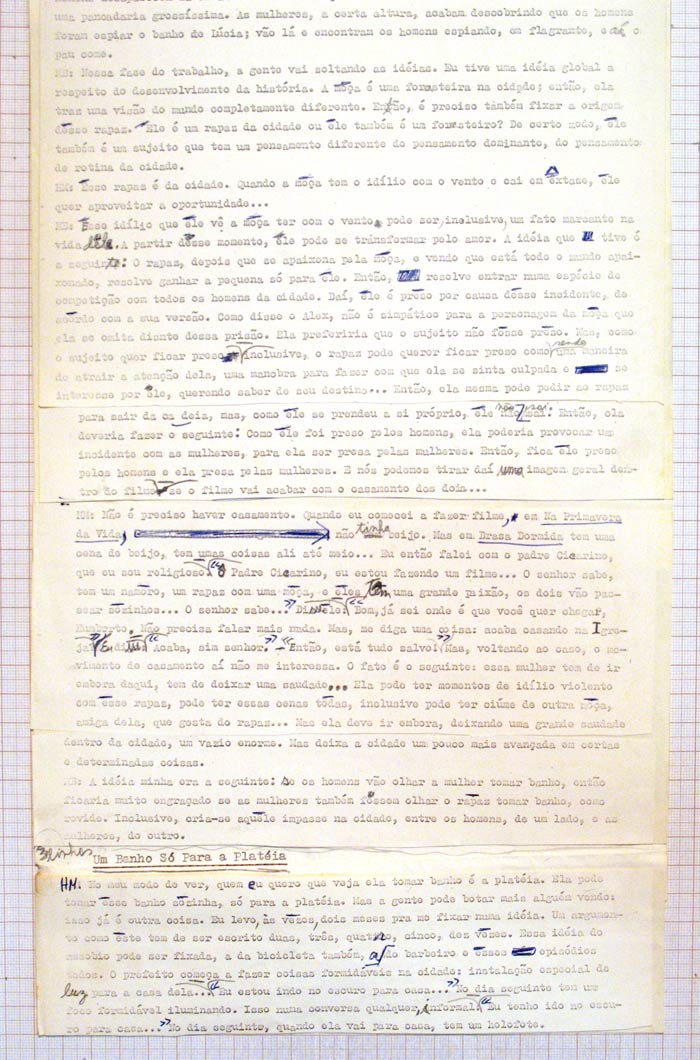 uma pancadaria grossíssima. As mulheres, a certa altura, acabam descobrindo que os homens
foram espiar o banho de Lúcia; vão lá e encontram os homens espiando, em flagrante, e aí o
pau come.
Nessa fase do trabalho, a gente vai soltando as idéias. Eu tive uma idéia global a
respeito do desenvolvimento da história. A môça é uma forasteira na cidade; então, ela
traz uma visão do mundo completamente diferente. Então, é preciso também fixar a origem
dêsse rapaz. Êle é um rapaz da cidade ou êle também é um forasteiro? De certo modo, êle
também é um sujeito que tem um pensamento diferente do pensamento dominante, do pensamento
de rotina da cidade.
HM: Êsse rapaz é da cidade. Quando a môça tem o idílio com o vento e cai em êxtase, êle
quer aproveitar a oportunidade...
Êsse idílio que êle vê a môça ter com o vento, pode ser, inclusive, um fato marcante na
vida dêle. A partir dêsse momento, êle pode se transformar pelo amor. A idéia que tive é
a seguinte: O rapaz, depois que se apaixona pela môça, e vendo que está todo o mundo apai-
xonado, resolve ganhar a pequena só para êle. Então, resolve entrar numa espécie de
competição com todos os homens da cidade. Daí, êle é prêso por causa dêsse incidente, de
acôrdo com a sua versão. Como disse o Alex, não é simpático para a personagem da môça que
ela se omita diante dessa prisão. Ela preferiria que o sujeito não fôsse prêso. Mas, como
o sujeito quer ficar prêso, inclusive, o rapaz pode querer ficar prêso como sendo uma maneira
de atrair a atenção dela, uma manobra para fazer com que ela se sinta culpada e se
interesse por êle, querendo saber do seu destino... Então, ela mesma pode pedir ao rapaz
para sair da ca deia, mas, como êle se prendeu a si próprio, êle não sai. Então, ela
deveria fazer o seguinte: Como êle foi prêso pelos homens, ela poderia provocar um
incidente com as mulheres, para ela ser prêsa pelas mulheres. Então, fica êle prêso
pelos homens e ela prêsa pelas mulheres. E nós podemos tirar daí uma imagem geral den-
tro do filme se o filme vai acabar com o casamento dos dois...
HM: Não é preciso haver casamento. Quando eu comecei a fazer filme, em Na Primavera
da Vida, não tinha beijo. Mas em Brasa Dormida tem uma
cena de beijo, tem umas coisas ali até meio... Eu então falei com o padre Cicarino,
que eu sou religioso: "Ô Padre Cicarino, eu estou fazendo um filme... O senhor sabe,
tem um namôro, um rapaz com uma môça, e êles têm uma grande paixão, os dois vão pas-
sear sòzinhos... O senhor sabe..." Disse êle: "Bom, já sei onde é que você quer chegar,
Humberto. Não precisa falar mais nada. Mas, me diga uma coisa: acaba casando na Igre-
ja?" Eu disse: "Acaba, sim senhor." — "Então, está tudo salvo!" Mas, voltando ao caso, o mo-
vimento de casamento aí não me interessa. O fato é o seguinte: essa mulher tem de ir
embora daqui, tem de deixar uma saudade... Ela pode ter momentos de idílio violento
com êsse rapaz, pode ter essas cenas tôdas, inclusive pode ter ciúme de outra môça,
amiga dela, que gosta do rapaz... Mas ela deve ir embora, deixando uma grande saudade
dentro da cidade, um vazio enorme. Mas deixa a cidade um pouco mais avançada em certas
e determinadas coisas.
A idéia minha era a seguinte: Se os homens vão olhar a mulher tomar banho, então
ficaria muito engraçado se as mulheres também fôssem olhar o rapaz tomar banho, como
revide. Inclusive, cria-se aquêle impasse na cidade, entre os homens, de um lado, e as
mulheres, do outro.
3 linhas
Um Banho Só Para a Platéia
HM. No meu modo de ver, quem eu quero que veja ela tomar banho é a platéia. Ela pode
tomar êsse banho sòzinha, só para a platéia. Mas a gente pode botar mais alguém vendo:
isso já é outra coisa. Eu levo, às vêzes, dois meses pra me fixar numa idéia. Um argumen-
to como êste tem de ser escrito duas, três, quatro, cinco, dez vêzes. Essa idéia do
assobio pode ser fixada, a da bicicleta também, a do barbeiro e êsses episódios
todos. O prefeito começa a fazer coisas formidáveis na cidade: instalação especial de
luz para a casa dela... "Eu estou indo no escuro para casa..." No dia seguinte tem um
foco formidável iluminando. Isso numa conversa qualquer, informal: "Eu tenho ido no escu-
ro para casa..." No dia seguinte, quando ela vai para casa, tem um holofote.